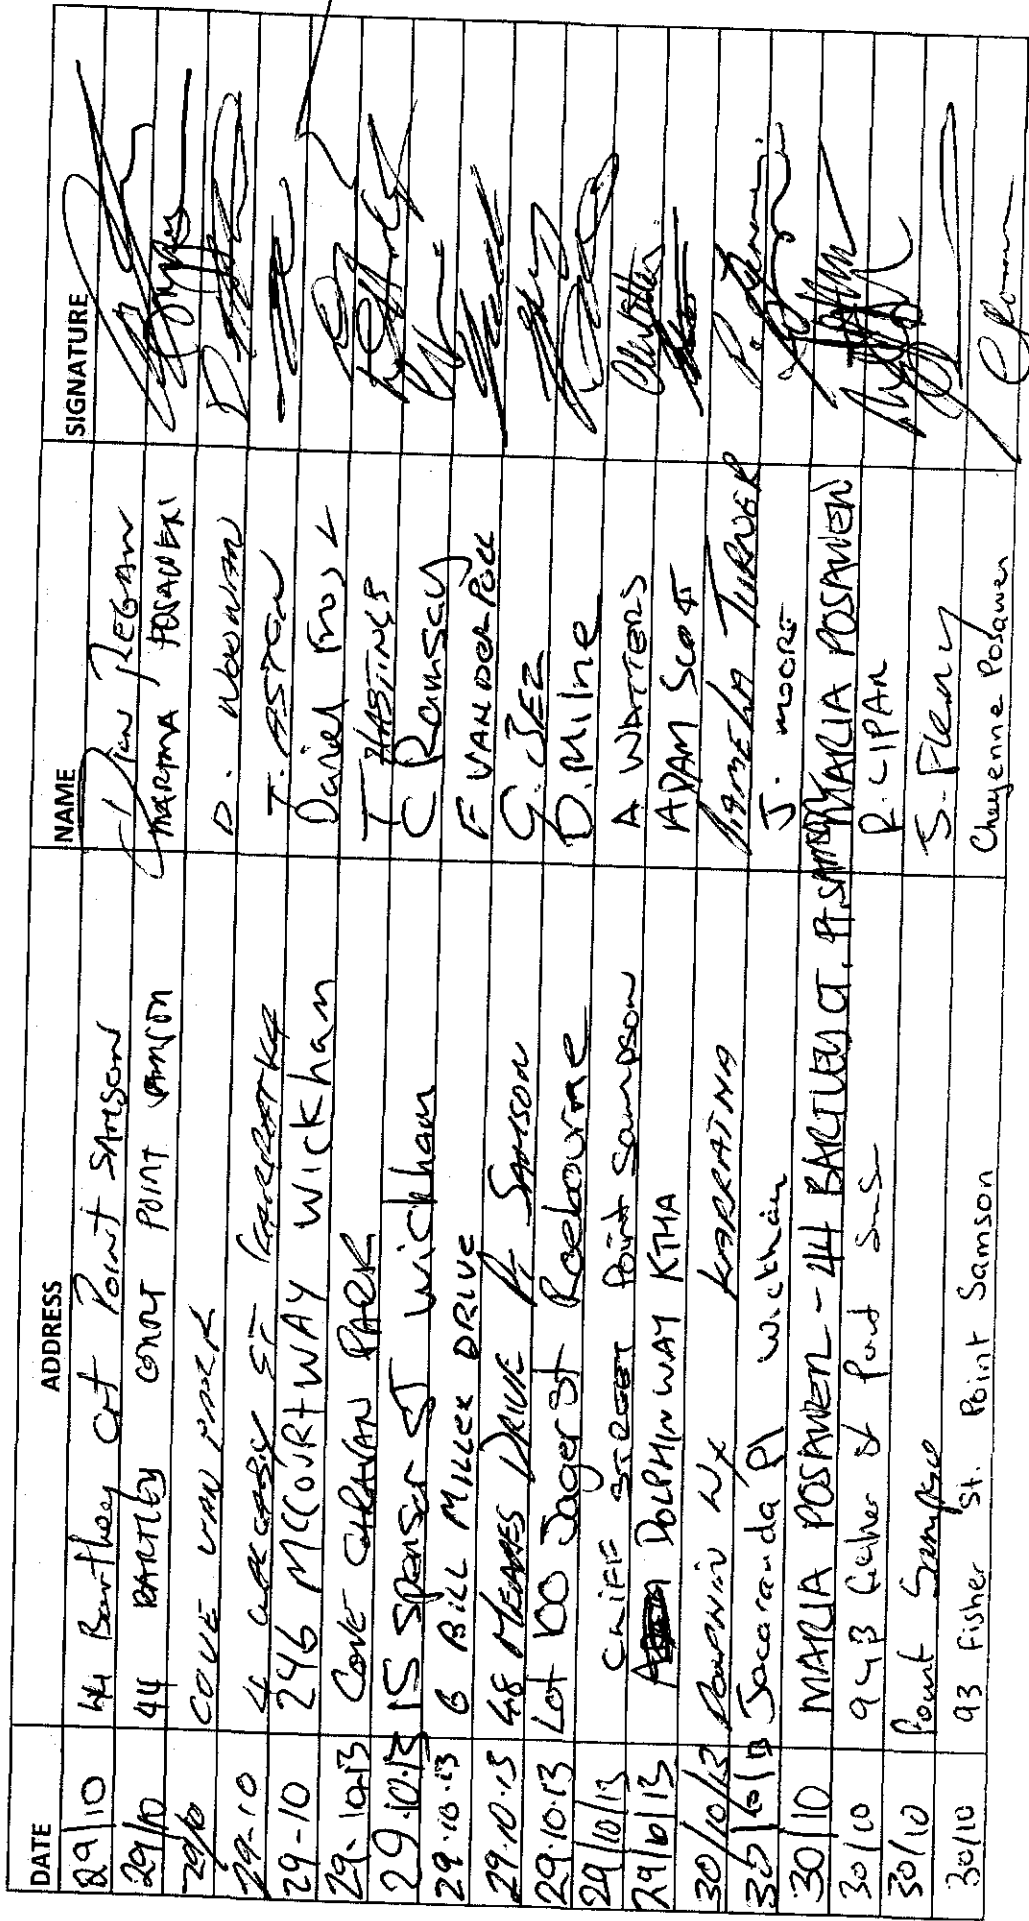 DATE ADDRESS NAME SIGNATURE
29/10 44 Barthey Crt Point SAMSON REGAN
29/10 44 BARTLEY COURT POINT
29/10 COVE VAN PARK D. NOONAN
29-10 4 ST KARRATHA T. ASTON
29-10 246 MCCOURT WAY Wickham Daniel
29-10-13 COVE CARAVAN PARK T HASTINGS
29.10.13 15 Spenser ST Wickham C Ramsay
29.10.13 6 BILL MILLER DRIVE F VANDERPOLL
29.10.13 48 MEARES DRIVE Pt SAMSON G. BEZ
29.10.13 Lot 100 Jager St Roebourne D. Milne
29/10/13 CLIFF STREET Point Sampson A WATTERS
29/10/13 DOLPHIN WAY KTHA ADAM Scott
30/10/13 DOLPHIN WX KARRATHA PAMELA TURNER
30/10/13 Jacaranda Pl Wickham J. MOORE
30/10 MARIA POSAVEN - 44 BARTLEY CT. PT. SAMSON MARIA POSAVEN
30/10 94B Fisher St R. LIPAR
30/10 Point Sampson S. Fleay
30/10 93 Fisher St. Point Samson Cheyenne Posaven